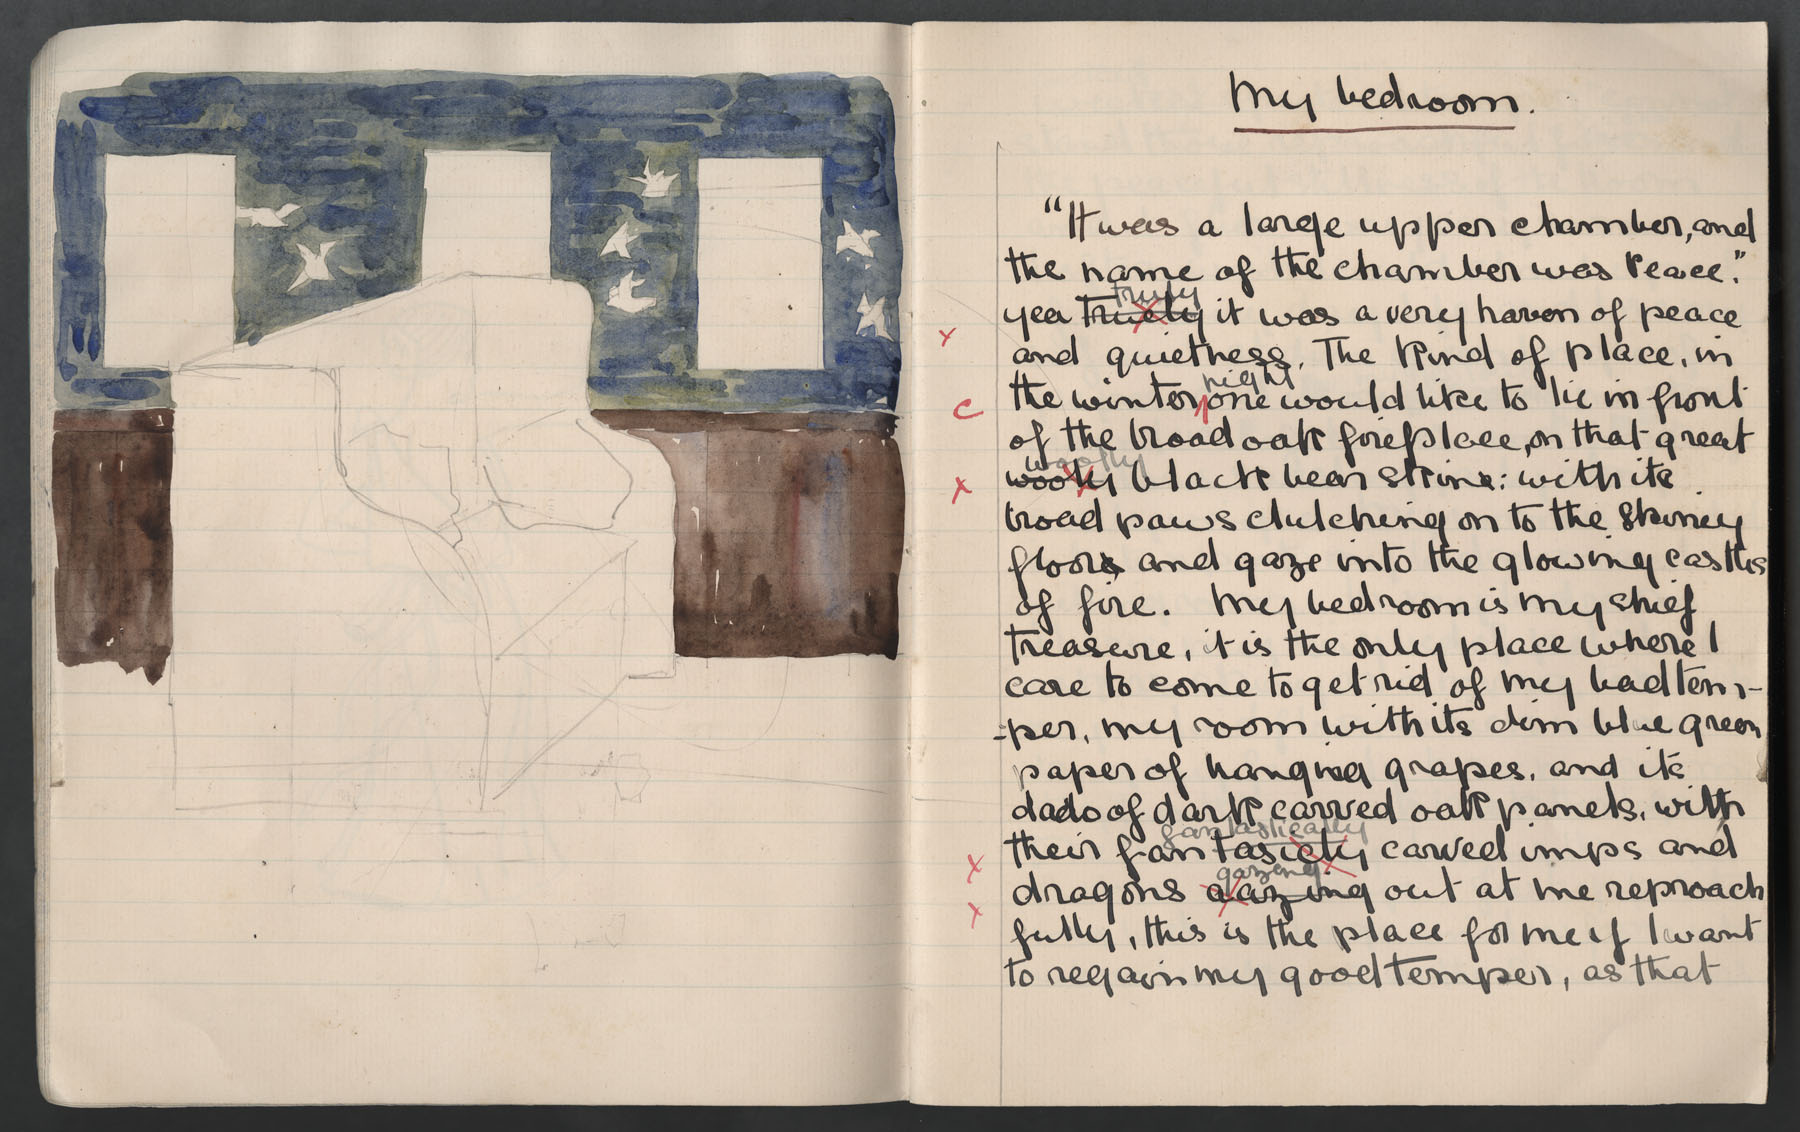 My bedroom.
"It was a large upper chamber, and
the name of the chamber was Peace."
truly
yea truely it was a very haven of peace
x
and quietness. The kind of place, in
night
the winter, one would like to lie in front
c
of the broad oak fireplace, on that great
woolly
x wooly black bear skin: with its
broad paws clutching on to the shiney
floor and gaze into the glowing castles
of fire. My bedroom is my chief
treasure, it is the only place where I
care to come to get rid of my bad tem-
-per, my room with its dim blue green
paper of hanging grapes, and its
dado of dark carved oak panels, with
fantastically
x their fantasicly carved imps and
gazing
x dragons gazing out at me reproach
fully, this is the place for me if I want
to regain my good temper, as that